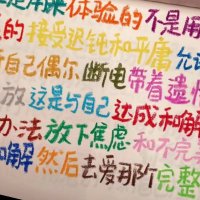 是用来体验的不是用
的接受迟钝和平庸允许
自己偶尔断电带着遗憾
放这是与自己达成和解
办法放下焦虑和不完
和解然后去爱那个完整